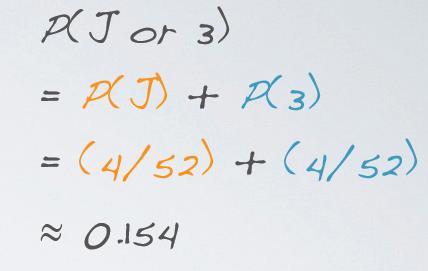 P(J or 3)
= P(J) + P(3)
= (4/52) + (4/52)
≈ 0.154